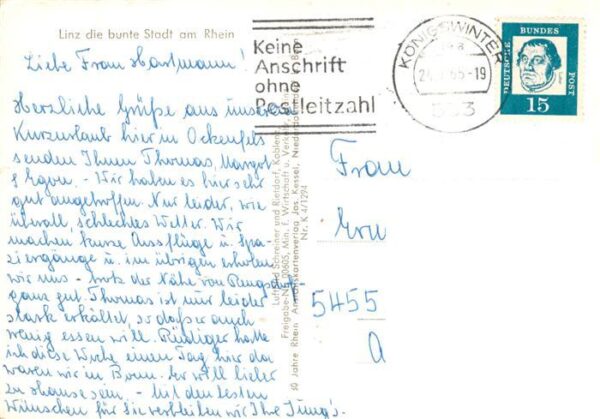 Linz die bunte Stadt am Rhein
Liebe Frau Hartmann!
Herzliche Grüße aus unserem
Kurzurlaub hier in Ockenfels
senden Ihnen Thomas, Margot
& Egon. - Wir haben es hier sehr
gut angetroffen. Nur leider, wie
überall, schlechtes Wetter. Wir
machen kurze Ausflüge u. Spa-
ziergänge u. im übrigen erholen
wir uns - trotz der Nähe von
ganz gut. Thomas ist nur leider
stark erkältet, so daß er auch
wenig essen will. Rüdiger hatte
ich diese Woche einen Tag hier da
waren wir in Bonn. Er will lieber
zu Hause sein. - Mit den besten
Wünschen für Sie verbleiben wir Ihre
Keine
Anschrift
ohne
Postleitzahl
KÖNIGSWINTER
65-19
533
DEUTSCHE
BUNDES
POST
15
Luftbild Schreiner und Rietdorf, Koblenz
Min. f. Wirtschaft u. Verkehr
50 Jahre Rhein Ansichtskartenverlag Jos. Kessel,
Nr. K 4/1294
Frau
5455